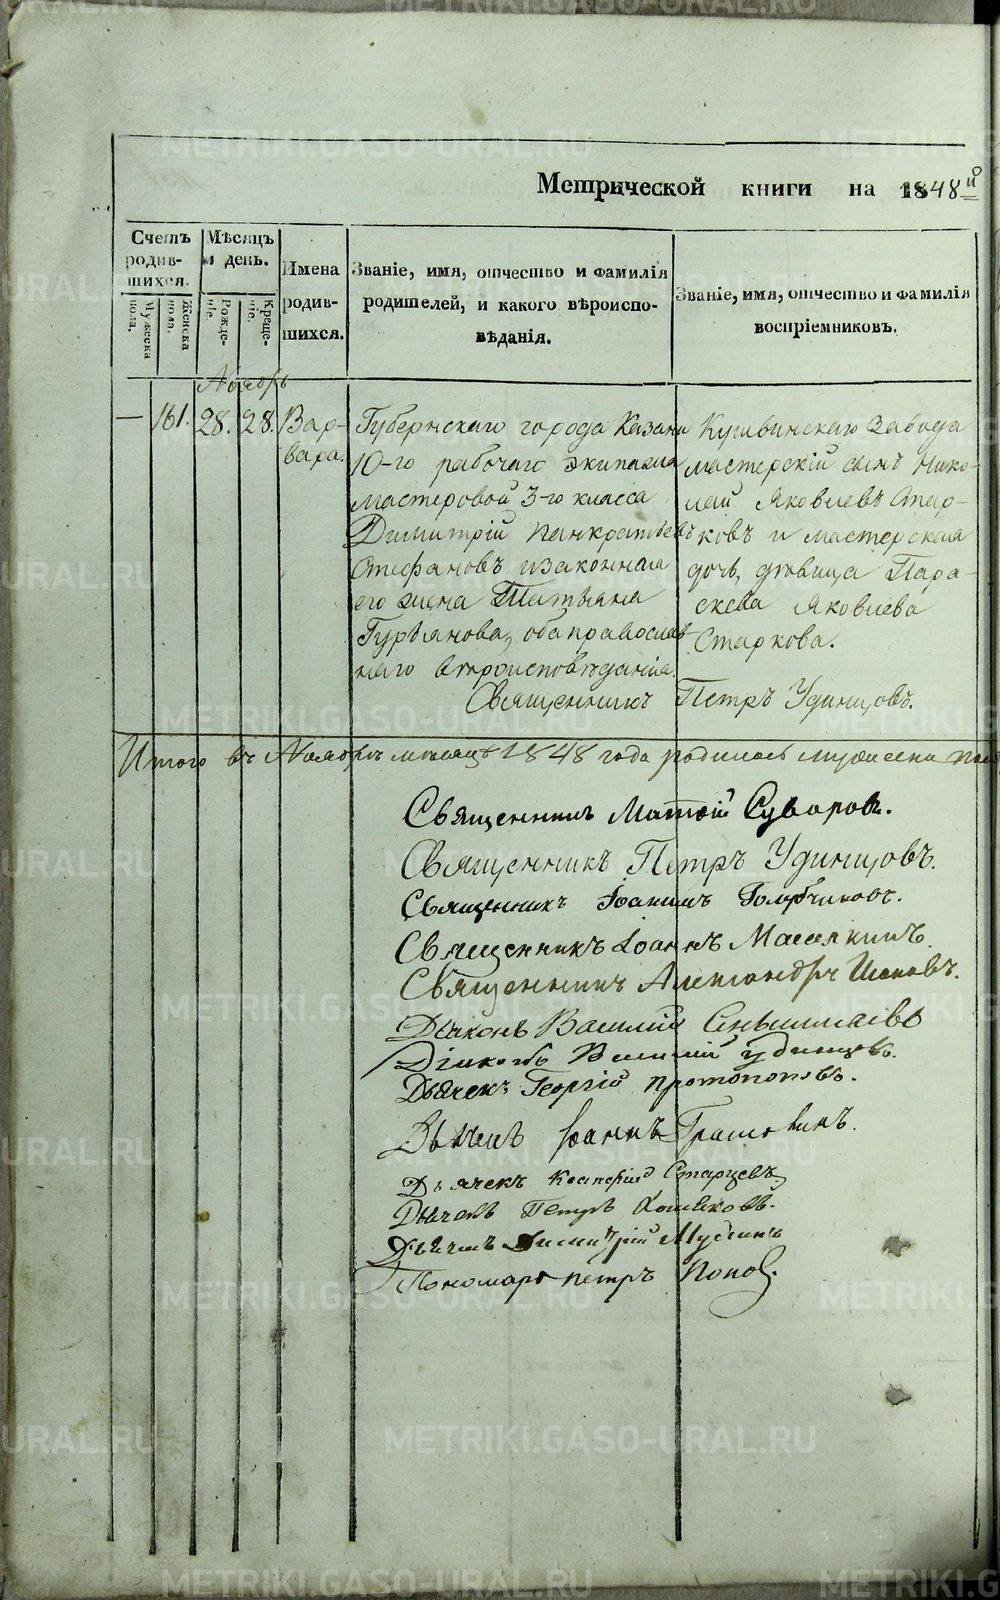 Метрической книги на 1848й
Счетъ родив-шихся.
Мужеска пола.
Женска пола.
Мѣсяцъ и день.
Рожде-ніе.
Креще-ніе.
Имена родив-шихся.
Званіе, имя, отчество и фамилія
родителей, и какого вѣроиспо-
вѣданія.
Званіе, имя, отчество и фамилія
воспріемниковъ.
Ноябрь
— 161. 28. 28. Вар-
вара.
Губернскаго города Казани
10-го рабочаго экипажа
мастеровой 3-го класса
Димитрій Панкратьевъ
Стефановъ и законная
его жена Татьяна
Гурьянова, оба православ-
наго вѣроисповѣданія.
Кушвинскаго Завода
мастерскій сынъ Нико-
лай Яковлевъ Стар-
ковъ и мастерская
дочь, дѣвица Пара-
скева Яковлева
Старкова.
Священникъ Петръ Удинцовъ.
Итого въ Ноябрѣ мѣсяцѣ 1848 года родилось мужеска пола
Священникъ Матвій Суворовъ.
Священникъ Петръ Удинцовъ.
Священникъ Іоакимъ Голубчиковъ.
Священникъ Іоаннъ
Священникъ Александръ
Діаконъ Василій
Діаконъ Василій Удинцовъ.
Дьячекъ Георгій Протопоповъ.
Дьячекъ Іоаннъ
Дьячекъ Старцевъ
Дьячекъ Петръ
Дьячекъ Димитрій
Пономарь Петръ Поповъ.
METRIKI.GASO-URAL.RU